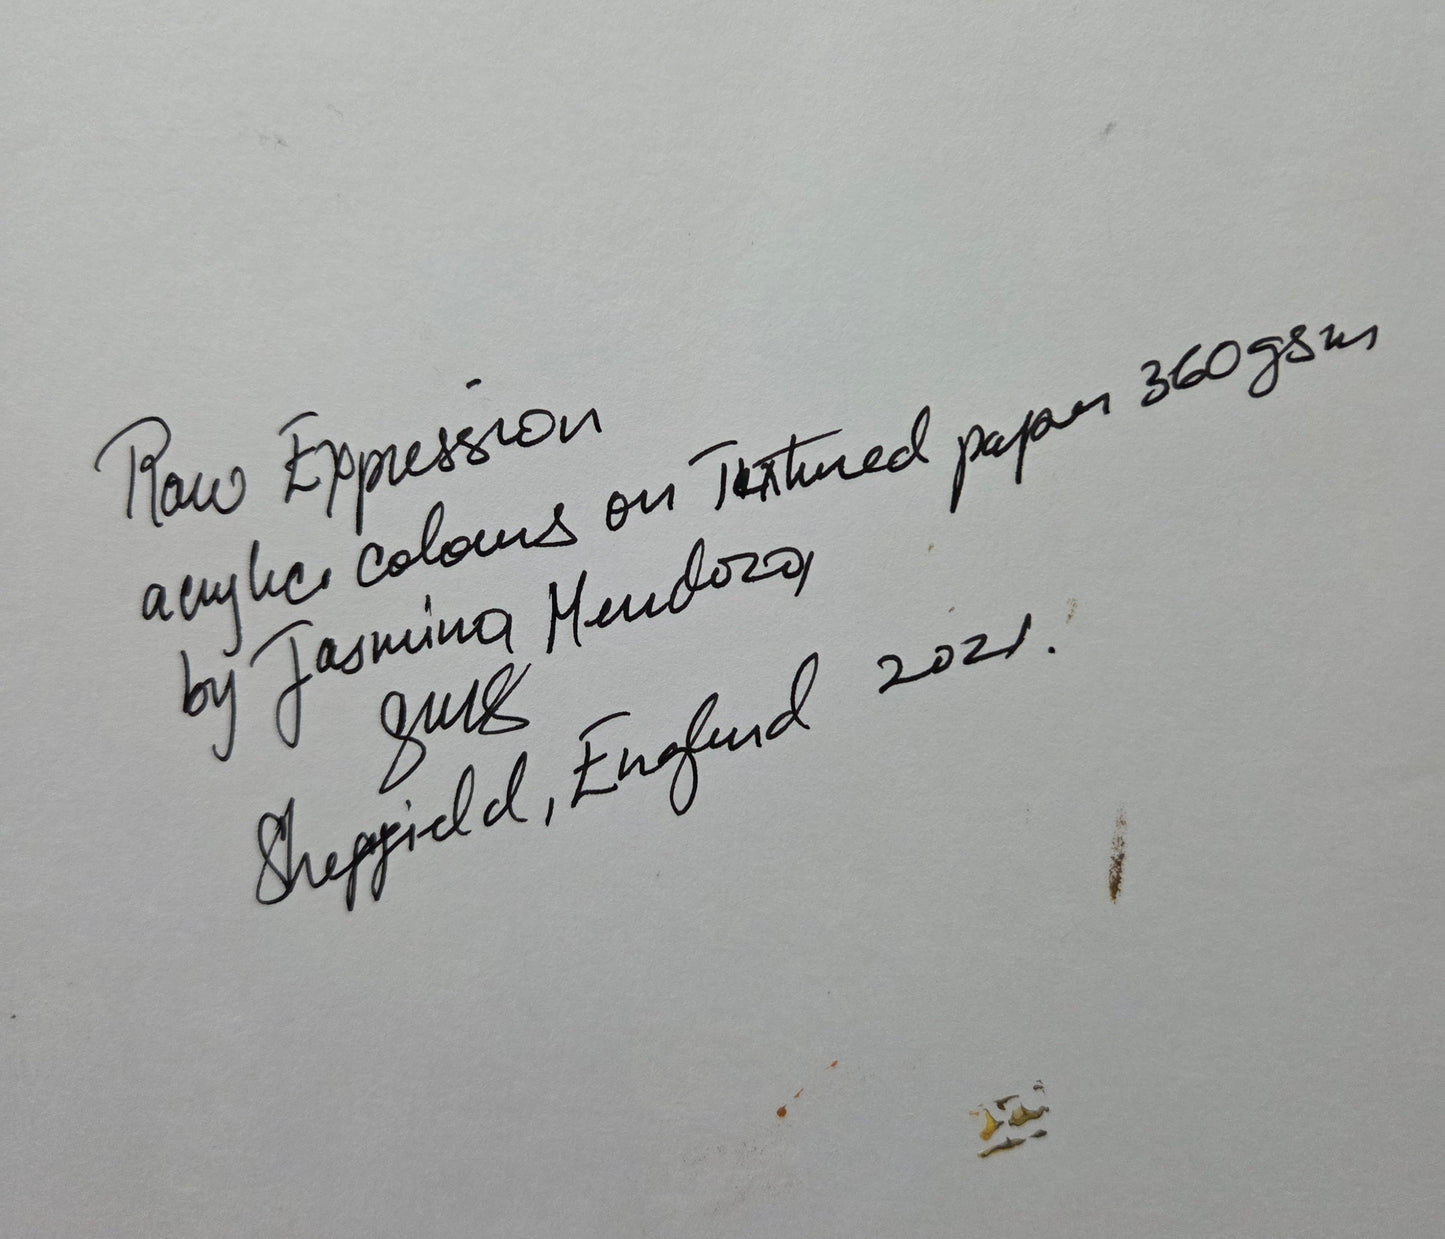 Raw Expression
acrylic colours on Textured paper 360gsm
by Jasmina Mendoza,
Sheffield, England 2021.